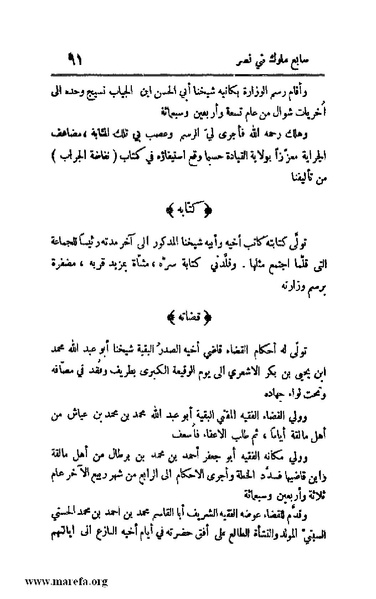 سابع ملوك بني نصر ٩١
وأقام رسم الوزارة بكاتبه شيخنا أبي الحسن ابن الجياب نسيج وحده الى
أخريات شوال من عام تسعة وأربعين وسبعمائة
وهلك رحمه الله فأجرى لي الرسم وعصب بي تلك المثابة، مضاعف
الجراية معززاً بولاية القيادة حسبما وقع استيفاؤه في كتاب (نفاضة الجراب)
من تأليفنا
﴿ كتابه ﴾
تولى كتابته كاتب أخيه وأبيه شيخنا المذكور الى آخر مدته رئيساً للجماعة
التي قلما اجتمع مثلها. وقلدني كتابة سره، مثناة بمزيد قربه، مضفرة
برسم وزارته
﴿ قضاته ﴾
تولى له أحكام القضاء قاضي أخيه الصدر البقية شيخنا أبو عبد الله محمد
ابن يحيى بن بكر الاشعري الى يوم الوقيعة الكبرى بطريف وفُقد في مصافه
وتحت لواء جهاده
وولي القضاء الفقيه المفتي البقية أبو عبد الله محمد بن محمد بن عياش من
أهل مالقة أياماً، ثم طلب الاعفاء فأسعف
وولي مكانه الفقيه أبو جعفر أحمد بن محمد بن برطال من أهل مالقة
وابن قاضيها فسدد الخطة وأجرى الاحكام الى الرابع من شهر ربيع الآخر عام
ثلاثة وأربعين وسبعمائة
وقدم للقضاء عوضه الفقيه الشريف أبا القاسم محمد بن احمد بن محمد الحسني
السبتي المولد والنشأة الطالع على أفق حضرته في أيام أخيه النازع الى ايالتهم
www.marefa.org